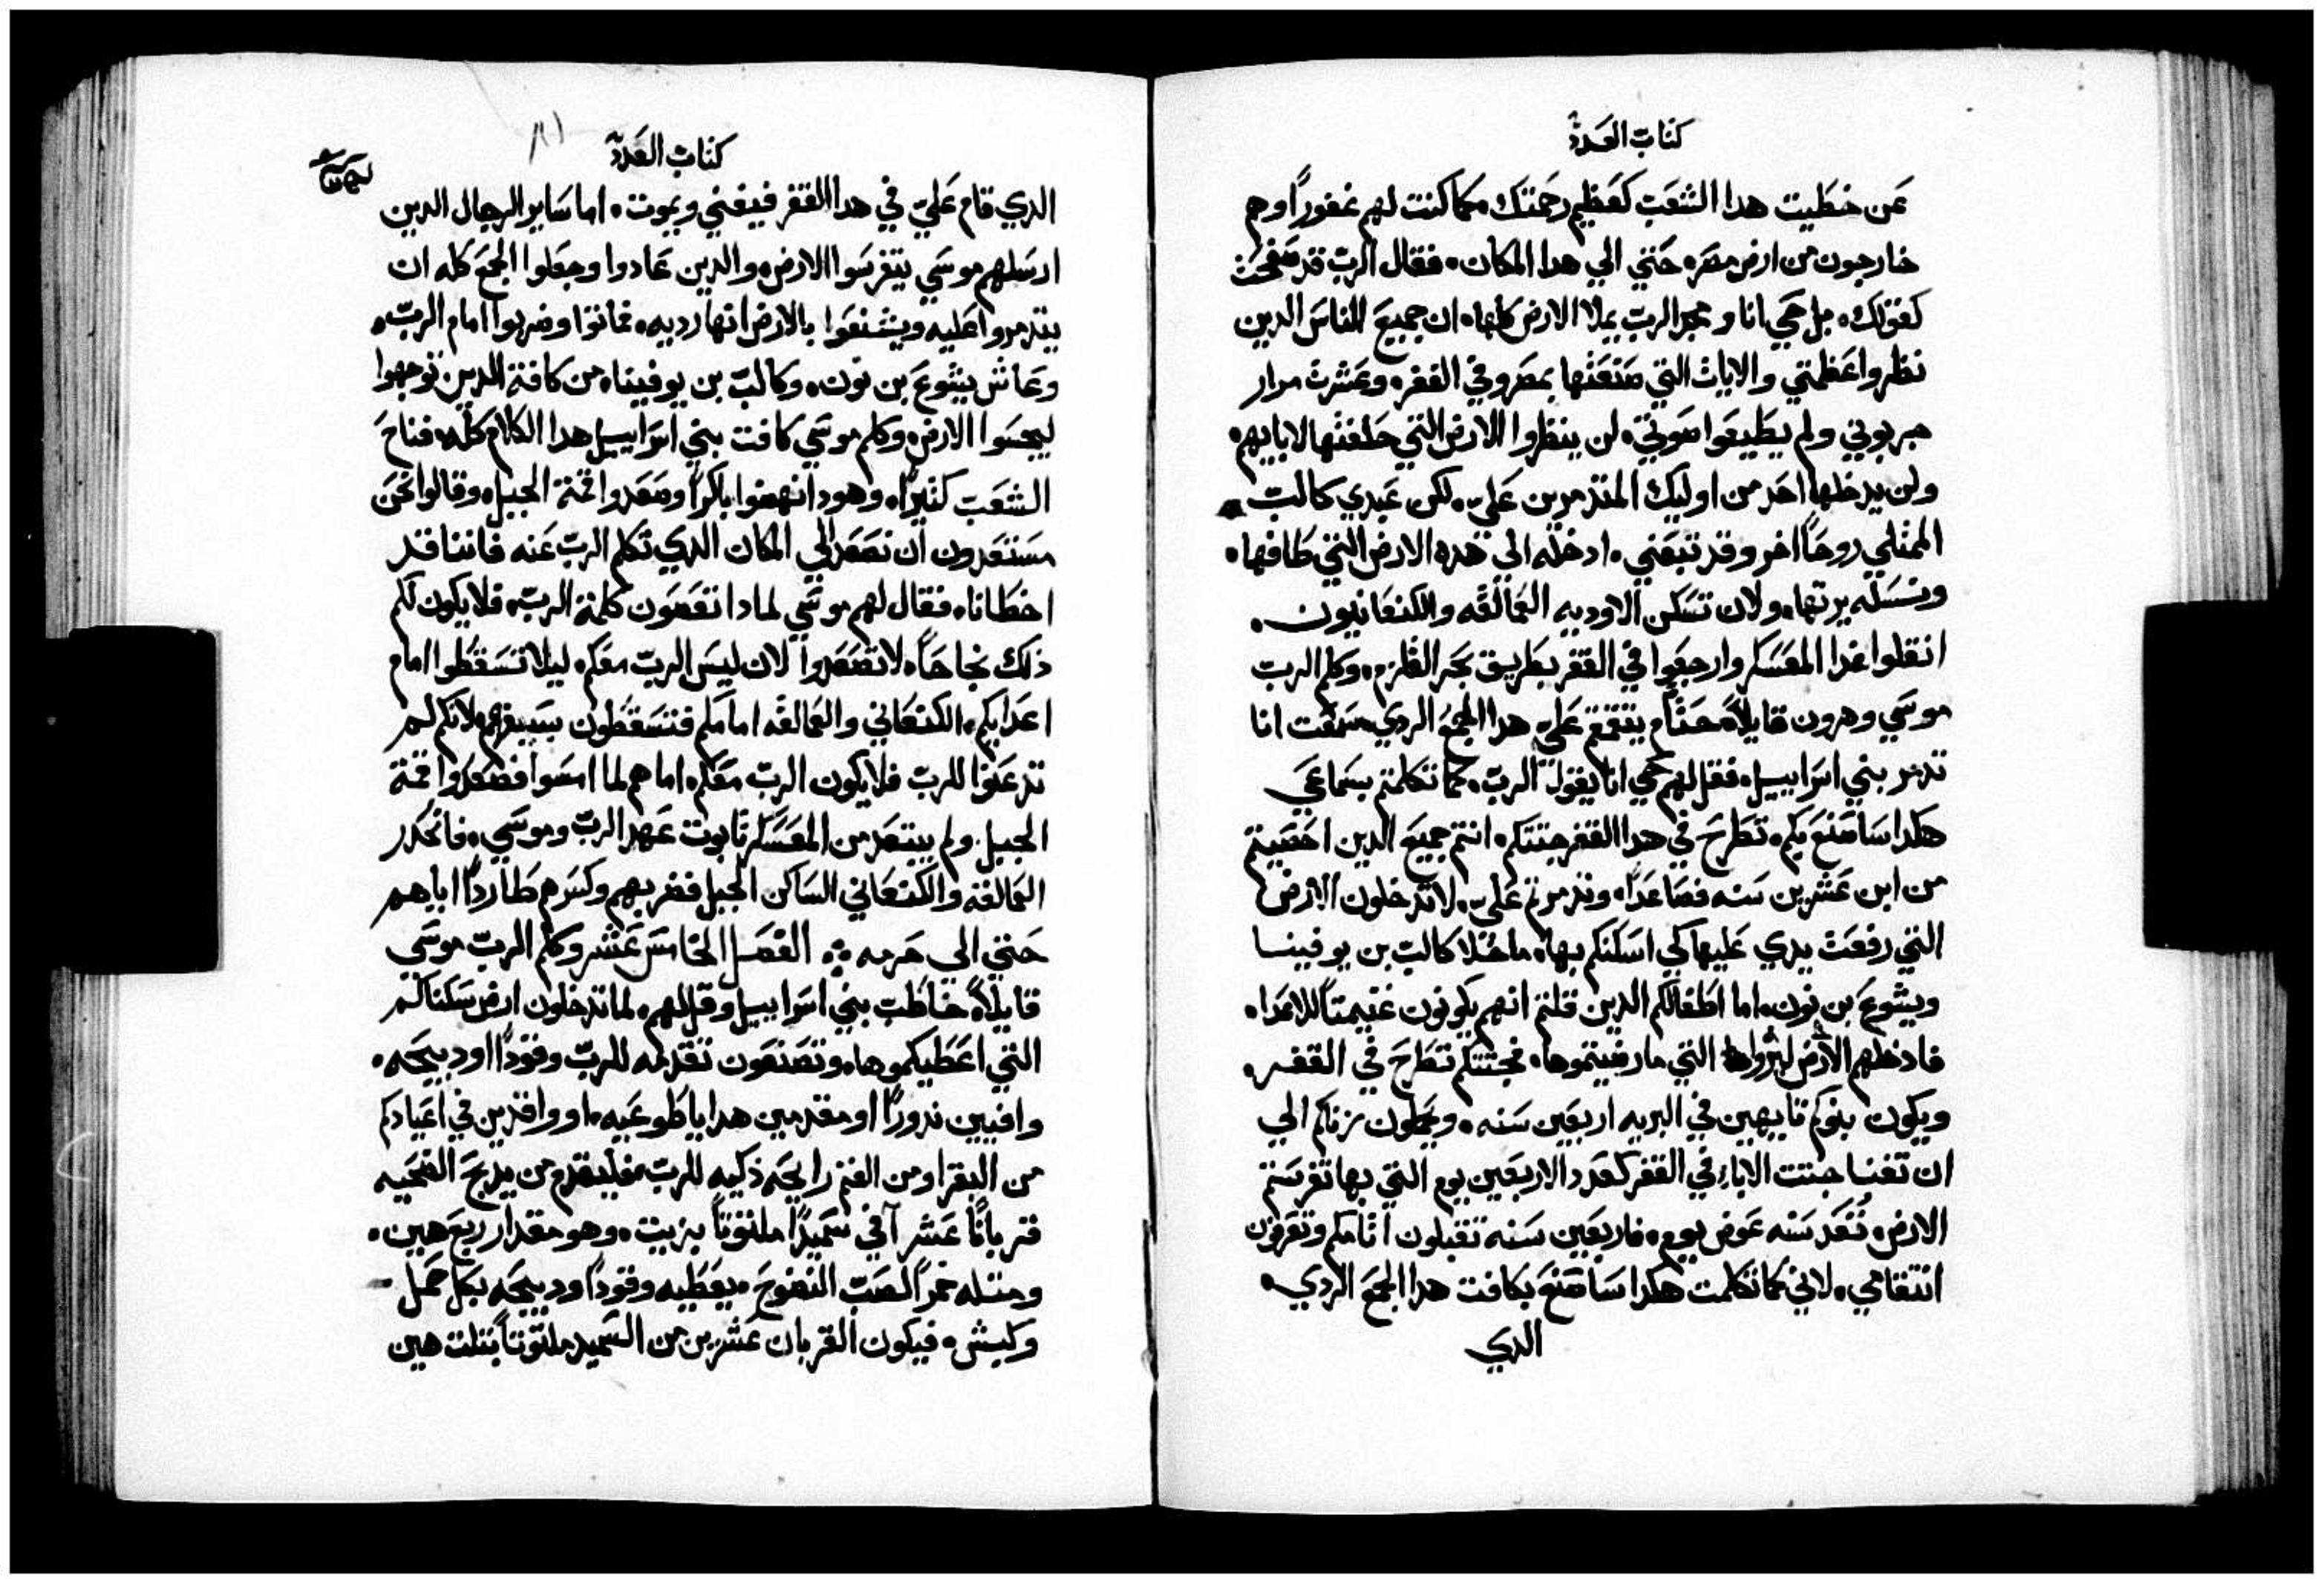 كتاب العدد
عن خطيت هدا الشعب كعظيم رحمتك، كما كنت لهم غفورًا وهم
خارجون من ارض مصر، حتي الي هدا المكان، فقال الرب قد صفحت
كقولك، بل حي انا ومجد الرب يملا الارض كلها، ان جميع الناس الدين
نظروا عظمتي والايات التي صنعتها بمصر وفي القفر، وعشرت مرار
جربوني ولم يطيعوا صوتي، لن ينظروا الارض التي حلفتها لابايهم
ولن يدخلها احد من اوليك المتدمرين علي، لكن عبدي كالب
الممتلي روحًا اخر وقد تبعني، ادخله الي هده الارض التي طافها،
ونسله يرتها، ولان تسكن الاوديه العمالقه والكنعانيون.
انقلوا غدا المعسكر وارجعوا في القفر بطريق بحر القلزم، وكلم الرب
موسي وهرون قايلاً حتام يتقمقم علي هدا الجمع الردي، سمعت انا
تدمر بني اسراييل، فقل لهم حي انا يقول الرب، كما تكلمتم بسماعي
هكدا ساصنع بكم، تطرح في هدا القفر جتتكم، انتم جميع الدين احصيتم
من ابن عشرين سنه فصاعدًا، وتدمرتم علي، لا تدخلون الارض
التي رفعت يدي عليها كي اسكنكم بها، ماخلا كالب بن يوفينا
ويشوع بن نون، اما اطفالكم الدين قلتم انهم يكونون غنيمتاً للاعدا،
فادخلهم الارض ليروا التي مارضيتموها، فجتتكم تطرح في القفر،
ويكون بنوكم تايهين في البريه اربعين سنه، ويحملون زناكم الي
ان تفنا جتت الاباء في القفر كعدد الاربعين يوم التي بها تفرستم
الارض، تُعد سنه عوض يوم، فاربعين سنه تقبلون اتامكم وتعرفون
انتقامي، لاني كما تكلمت هكدا ساصنع بكافت هدا الجمع الردي،
الدي
كتاب العدد
الدي قام علي في هدا القفر فيفني ويموت، اما ساير الرجال الدين
ارسلهم موسي يتفرسوا الارض، والدين عادوا وجعلوا الجمع كله ان
يتدمروا عليه ويشنعوا بالارض انها رديه، فماتوا وضربوا امام الرب،
وعاش يشوع بن نون، وكالب بن يوفينا، من كافة الدين توجهوا
ليجسوا الارض، وكلم موسي كافت بني اسراييل هدا الكلام كله، فناح
الشعب كثيرًا، وهودا نهضوا باكراً وصعدوا قمة الجبل، وقالوا نحن
مستعدون ان نصعد الي المكان الدي تكلم الرب عنه فاننا قد
اخطانا، فقال لهم موسي لمادا تعصون كلمة الرب، فلا يكون لكم
ذلك نجاحاً، لا تصعدوا لان ليس الرب معكم، ليلا تسقطوا امام
اعدايكم، الكنعاني والعمالقه امامكم فتسقطون بسيفهم، لانكم لم
تدعنوا للرب فلا يكون الرب معكم، اما هم لما امسوا فصعدوا قمة
الجبل، ولم يبتعد من المعسكر تابوت عهد الرب وموسي، فانحدر
العمالقة والكنعاني الساكن الجبل فضربهم وكسرهم طارداً اياهم
حتي الي حرمه ܀ الفصل الخامس عشر وكلم الرب موسي
قايلاً، خاطب بني اسراييل وقل لهم، لما تدخلون ارض سكناكم
التي اعطيكموها، وتصنعون تقدمه للرب وقودًا او دبيحه،
وافيين ندورًا او مقدمين هدايا طوعيه، او وافدين في اعيادكم
من البقر او من الغنم رايحه ذكيه للرب، فليقدم من يدبح الضحيه
قربانًا عشر آفي سميدًا ملتوتاً بزيت، وهو مقدار ربع هين،
ومتله خمرًا لصب النضوح، يعطيه وقودًا ودبيحه بكل حمل
وكبش، فيكون القربان عشرين من السميد ملتوتاً بتلت هين